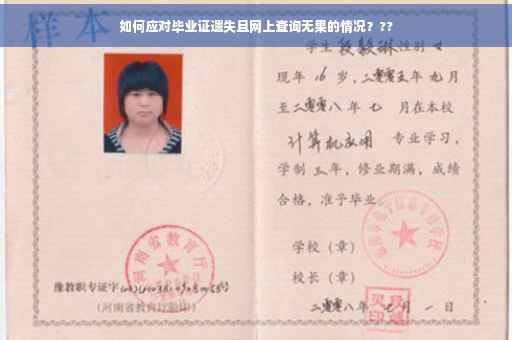 如何应对毕业证遗失且网上查询无果的情况？??
样本
学生 性别 女
现年 16 岁，二零零五年 九月
至二零零八 年 七 月在本校
计算机应用 专业学习，
学制 三 年，修业期满，成绩
合格，准予毕业
学校（章）
校长（章）
二零零八年 七 月 一 日
河南省教育厅
豫教职专证字
（河南省教育厅验印）